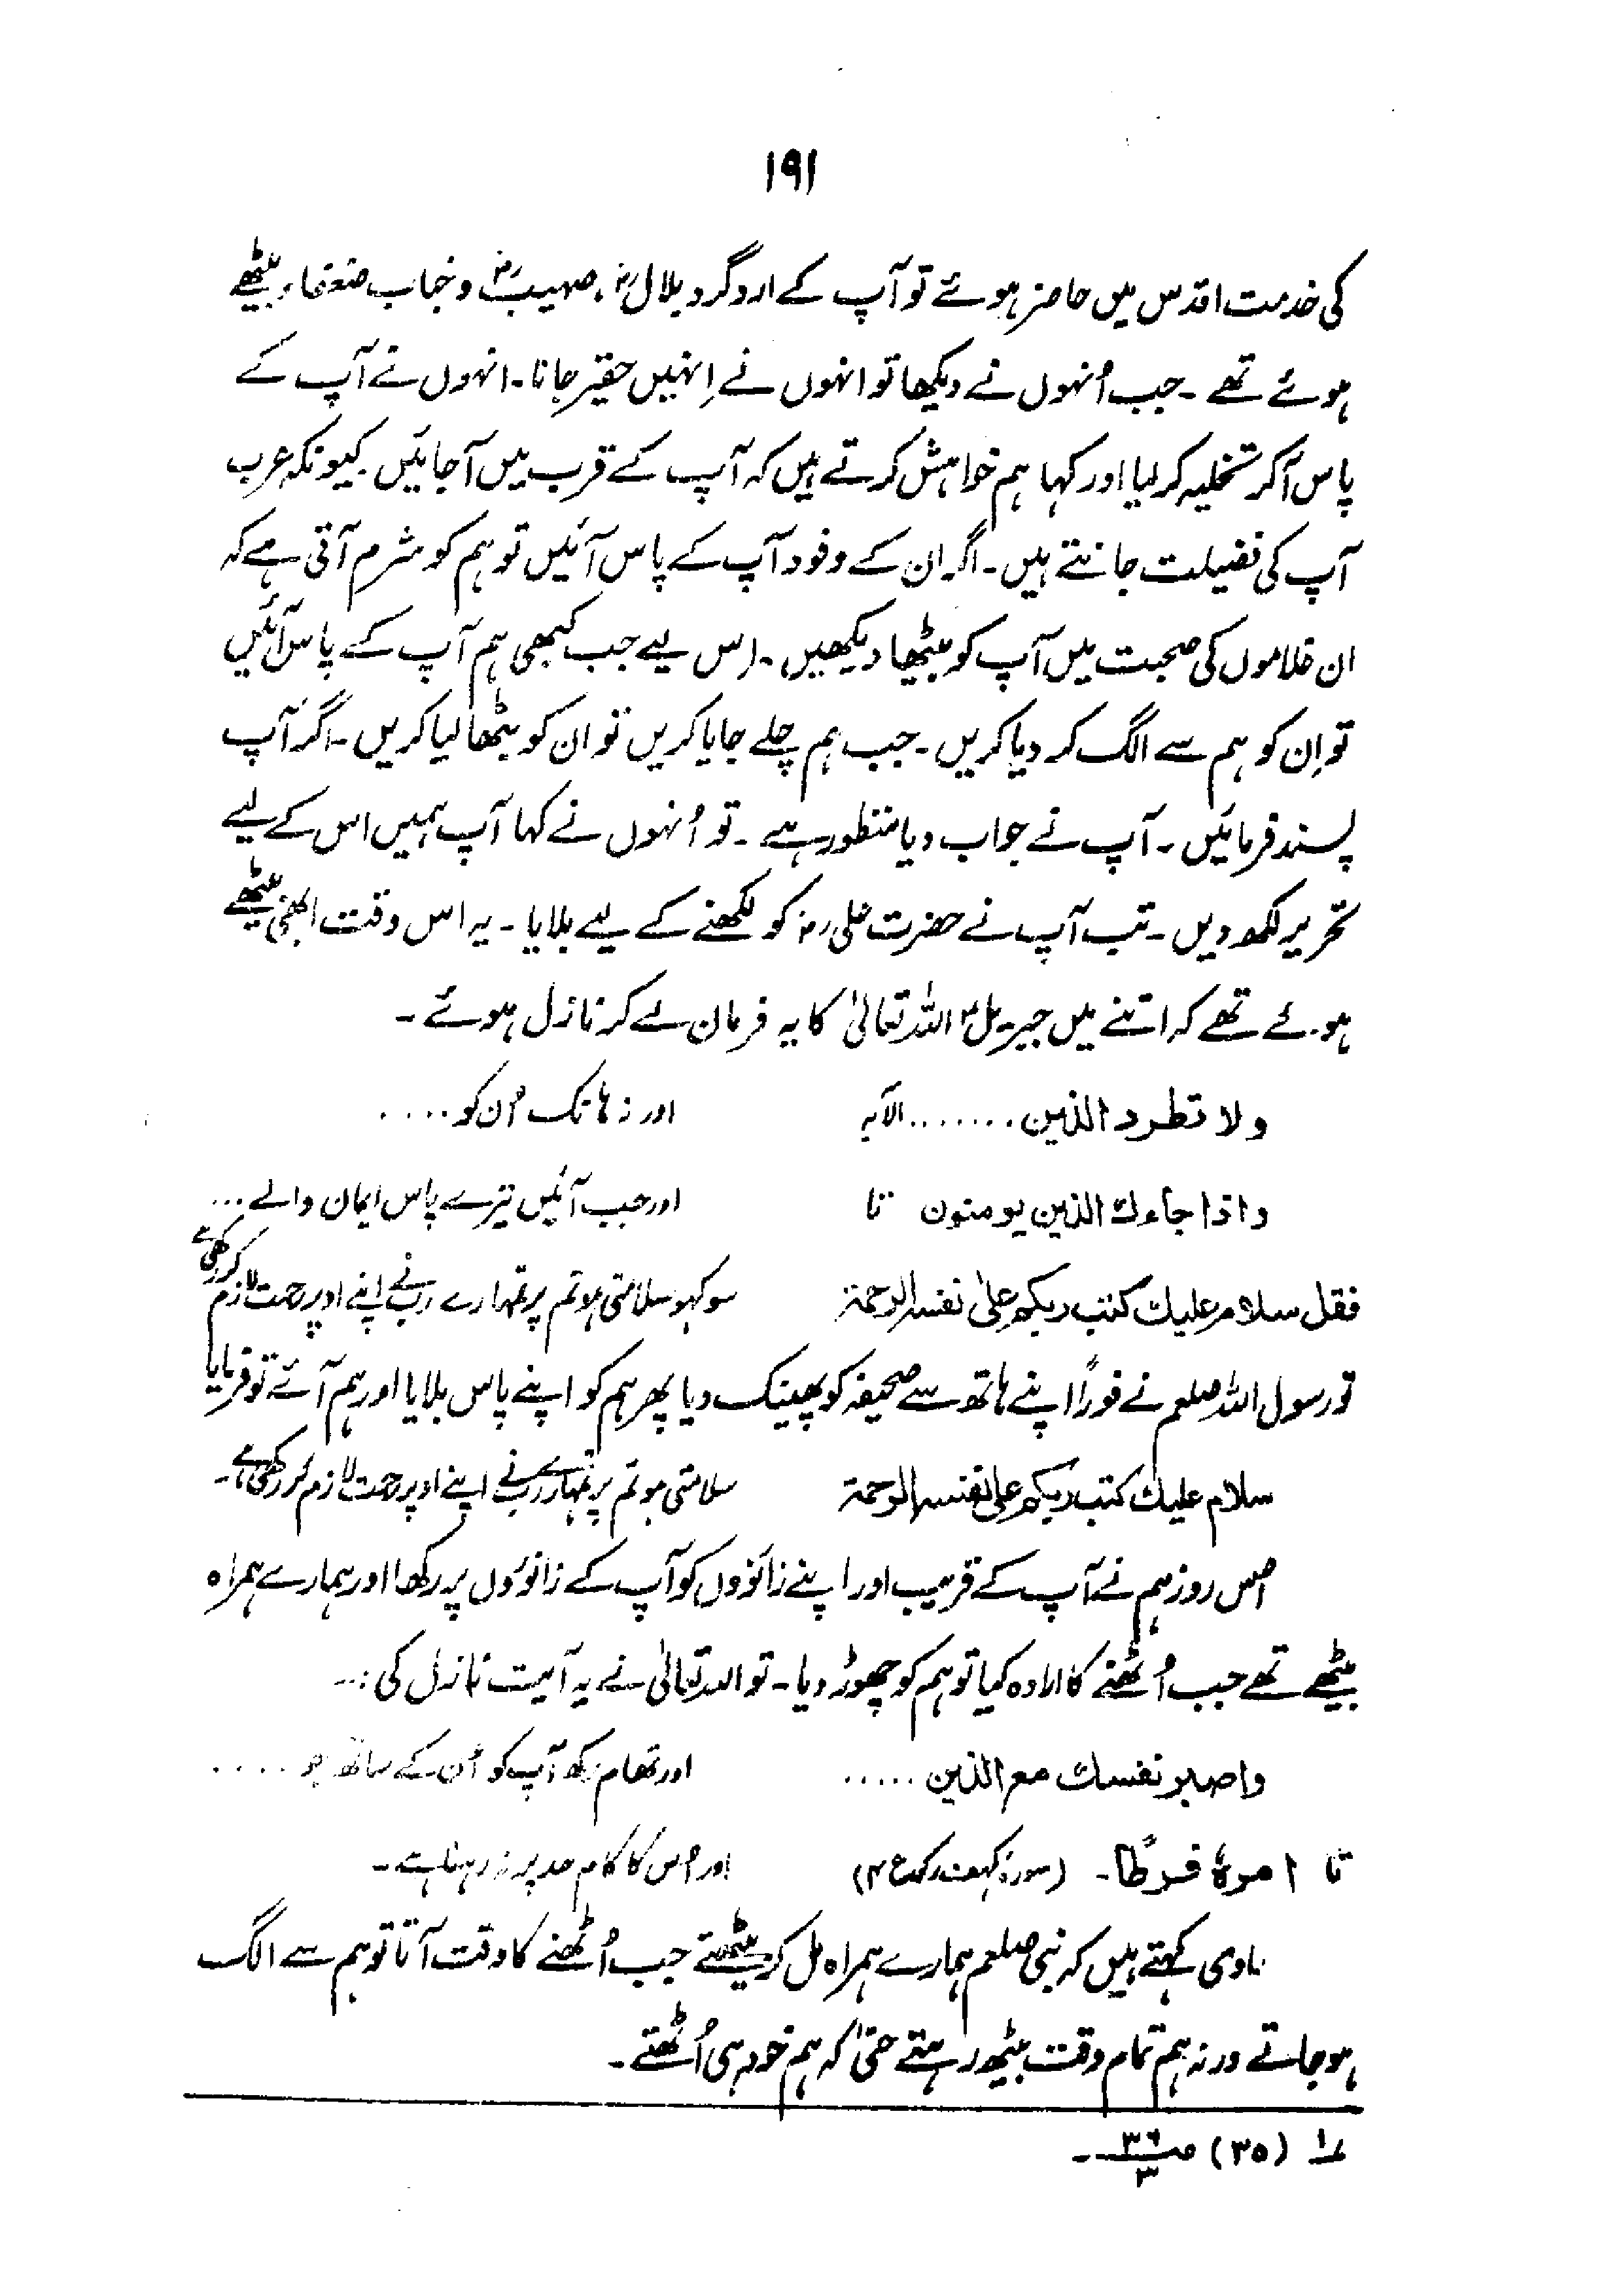 ۱۹۱
کی خدمت اقدس میں حاضر ہوئے تو آپ کے اردگرد بلالؓ، صہیبؓ و خباب ضعفاء بیٹھے
ہوئے تھے ۔ جب اُنہوں نے دیکھا تو انہوں نے اِنہیں حقیر جانا ۔ انہوں نے آپ کے
پاس آکر تخلیہ کر لیا اور کہا ہم خواہش کرتے ہیں کہ آپ کے قرب میں آجائیں کیونکہ عرب
آپ کی فضیلت جانتے ہیں ۔ اگر ان کے وفود آپ کے پاس آئیں تو ہم کو شرم آتی ہے کہ
ان غلاموں کی صحبت میں آپ کو بیٹھا دیکھیں ۔ اس لیے جب کبھی ہم آپ کے پاس آئیں
تو اِن کو ہم سے الگ کر دیا کریں ۔ جب ہم چلے جایا کریں تو ان کو بٹھا لیا کریں ۔ اگر آپ
پسند فرمائیں ۔ آپ نے جواب دیا منظور ہے ۔ تو اُنہوں نے کہا آپ ہمیں اس کے لیے
تحریر لکھ دیں ۔ تب آپ نے حضرت علیؓ کو لکھنے کے لیے بلایا ۔ یہ اس وقت ابھی بیٹھے
ہوئے تھے کہ اتنے میں جبریلؑ اللہ تعالیٰ کا یہ فرمان لے کر نازل ہوئے ۔
ولا تطرد الذین ....... الآیہ اور نہ ہانک اُن کو ....
واذا جاءك الذین یومنون تا اور جب آئیں تیرے پاس ایمان والے ...
فقل سلام علیك کتب ربکم علیٰ نفسہ الرحمۃ سو کہو سلامتی ہو تم پر تمہارے رب نے اپنے اوپر رحمت لازم کر رکھی ہے
تو رسول اللہ صلعم نے فوراً اپنے ہاتھ سے صحیفہ کو پھینک دیا پھر ہم کو اپنے پاس بلایا اور ہم آئے تو فرمایا
سلام علیك کتب ربکم علیٰ نفسہ الرحمۃ سلامتی ہو تم پر تمہارے رب نے اپنے اوپر رحمت لازم کر رکھی ہے ۔
اس روز ہم نے آپ کے قریب اور اپنے زانوؤں کو آپ کے زانوؤں پر رکھا اور ہمارے ہمراہ
بیٹھے تھے جب اُٹھنے کا ارادہ کیا تو ہم کو چھوڑ دیا ۔ تو اللہ تعالیٰ نے یہ آیت نازل کی :۔
واصبر نفسك مع الذین ..... اور تھام رکھ آپ کو اُن کے ساتھ جو .....
تا امرہٗ فرطًا ۔ (سورۃ کہف رکوع ۴) اور اُس کا کام حد پر نہ رہنا ہے ۔
راوی کہتے ہیں کہ نبی صلعم ہمارے ہمراہ مل کر بیٹھتے جب اُٹھنے کا وقت آتا تو ہم سے الگ
ہو جاتے ورنہ ہم تمام وقت بیٹھے رہتے حتیٰ کہ ہم خود ہی اُٹھتے ۔
؎۱ (۳۵) ص ۳۶/۳ ۔